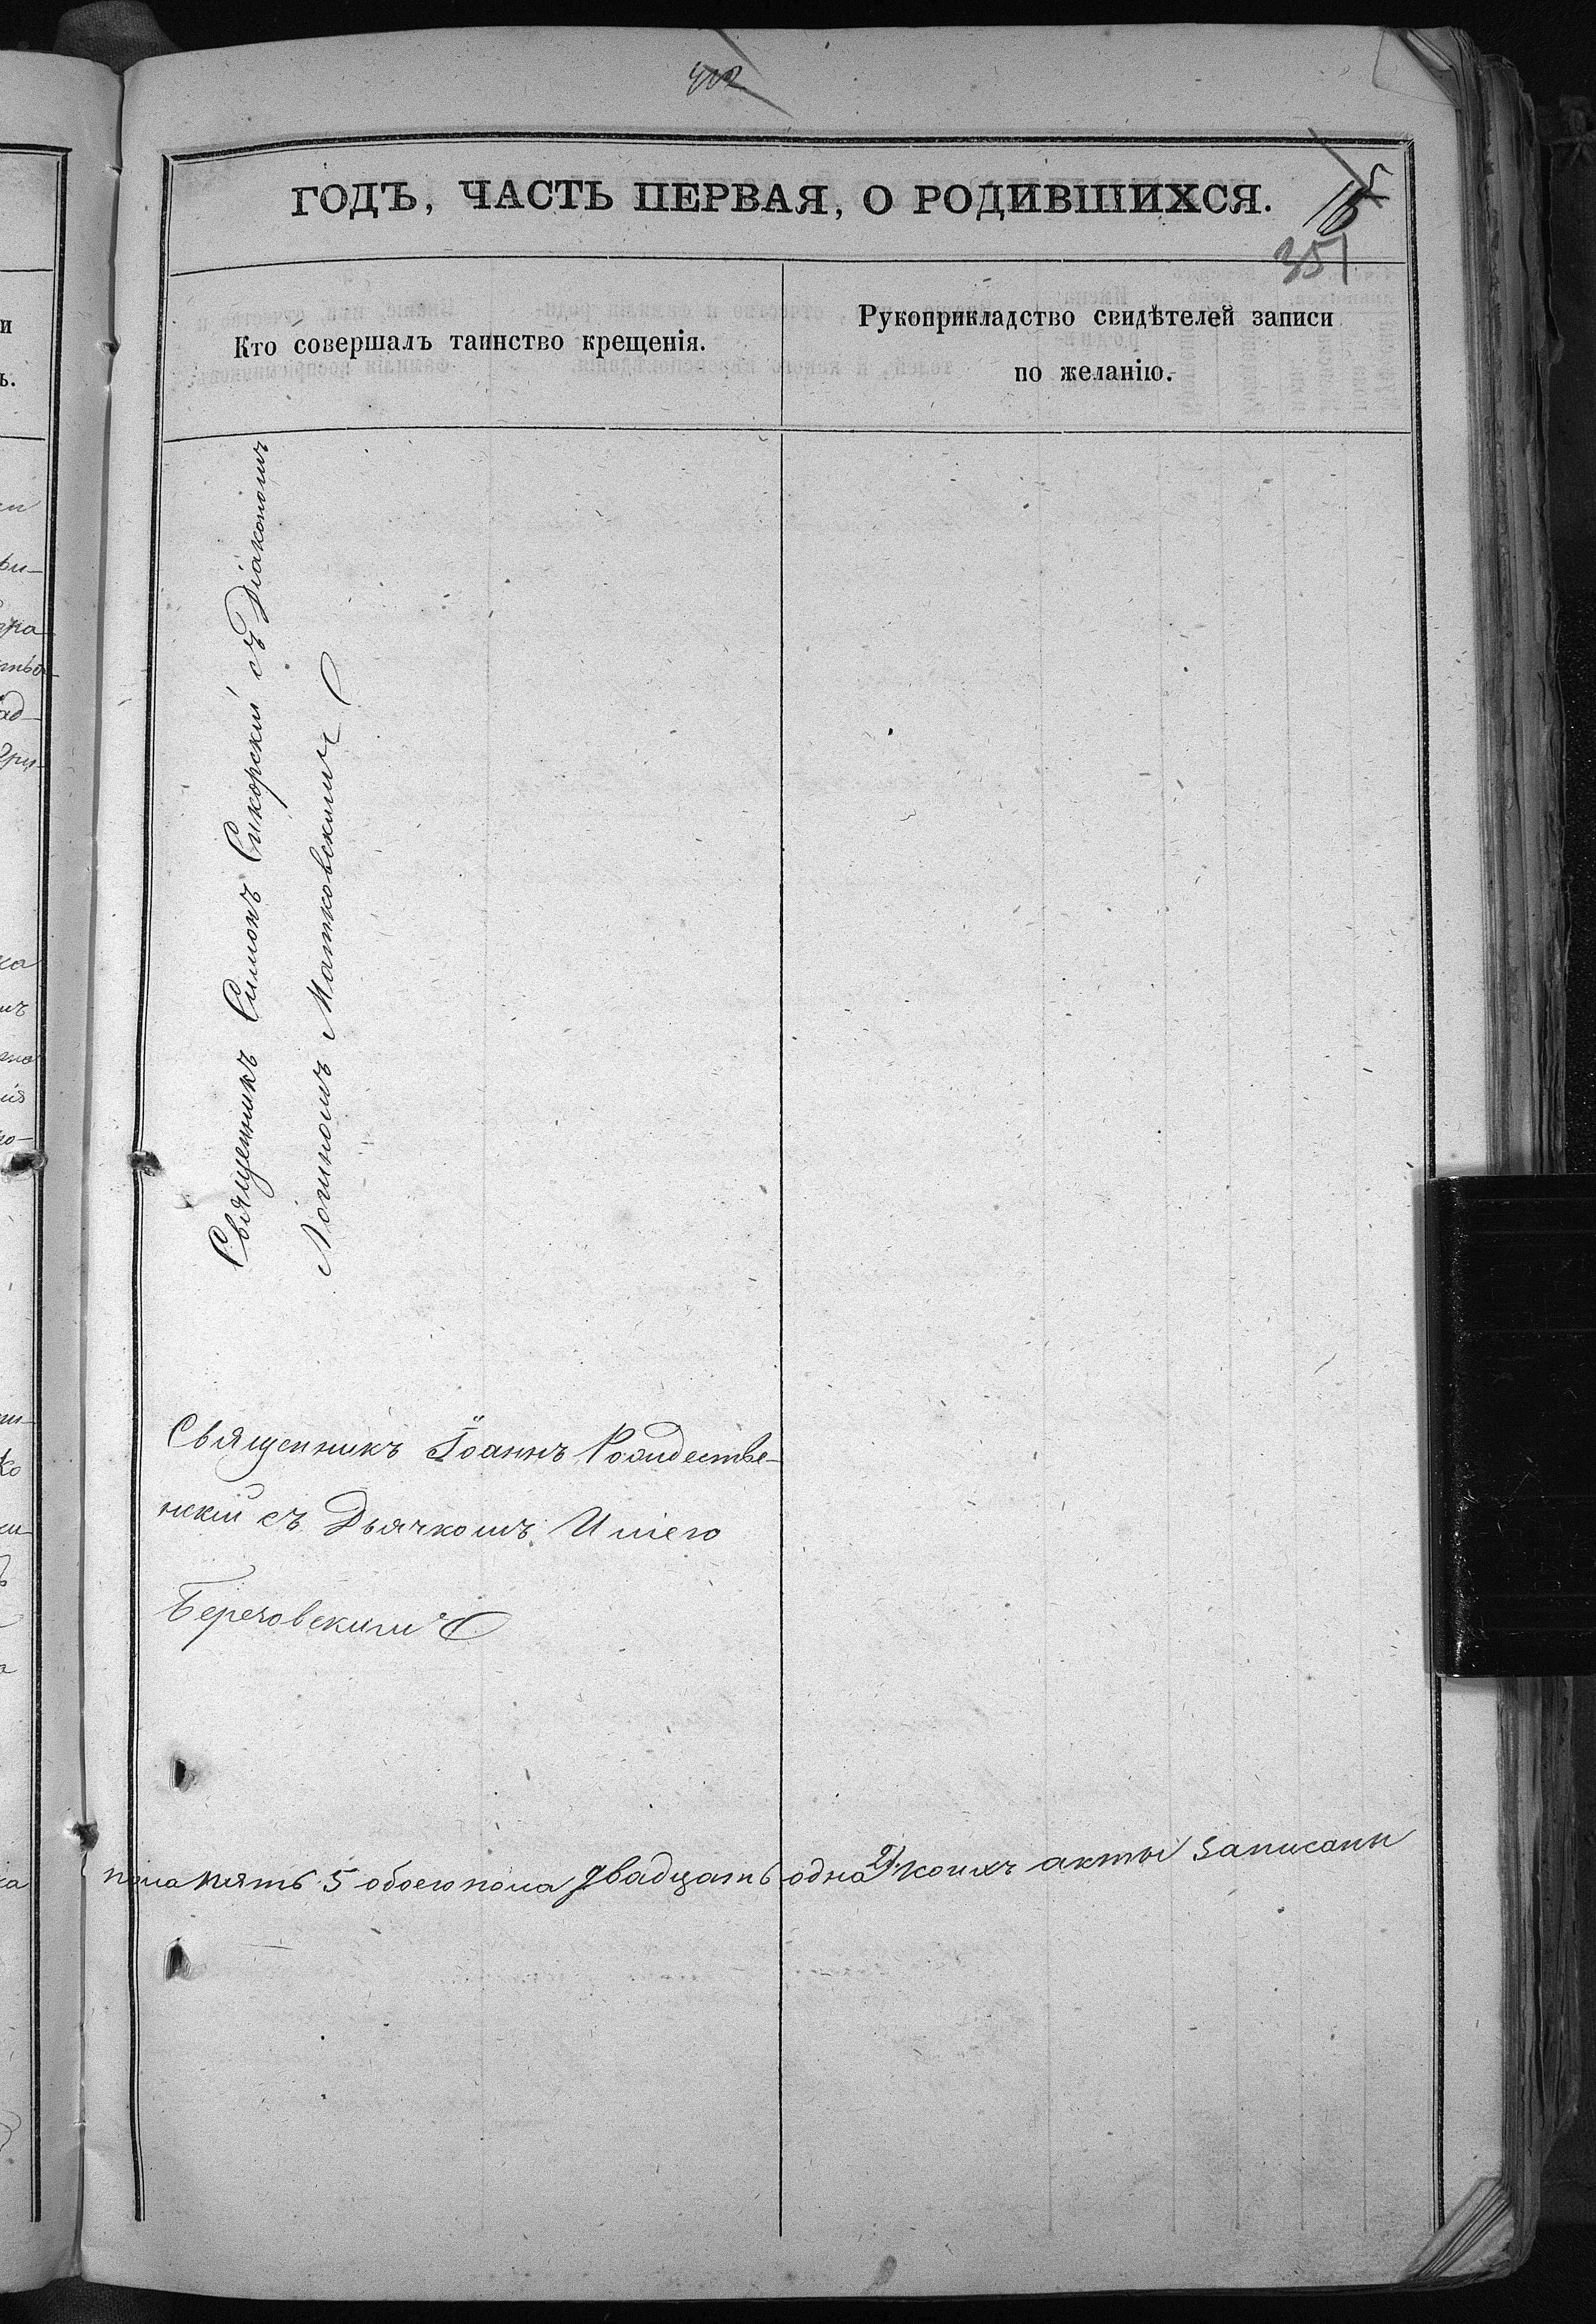 ГОДЪ, ЧАСТЬ ПЕРВАЯ, О РОДИВШИХСЯ.
351
Кто совершалъ таинство крещенія.
Рукоприкладство свидѣтелей записи
по желанію.
Священникъ Симонъ Сикорскій съ Діакономъ
Логиномъ Матковскимъ
Священникъ Іоаннъ Рождестве-
нскій съ Дьячкомъ
Березовскимъ
пола пять 5 обоего пола двадцать одна 21 коихъ акты записаны